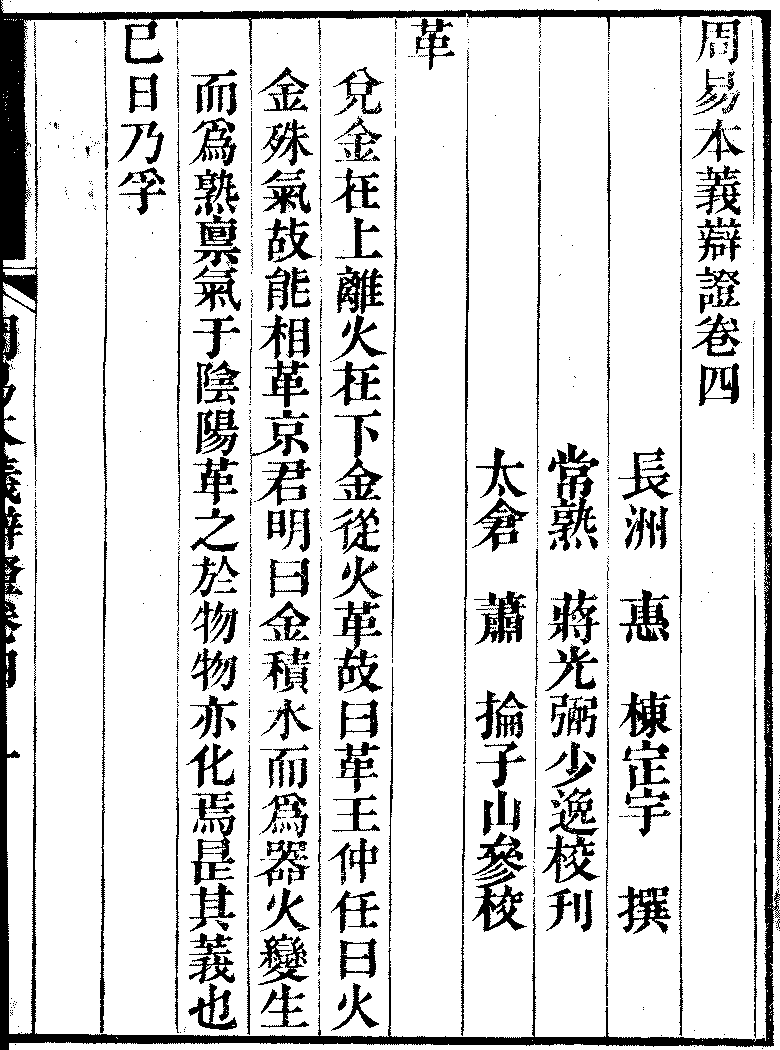 周易本義辯證卷四
長洲 惠 棟定宇 撰
常熟 蔣光弼少逸校刊
太倉 蕭 掄子山參校
革
兌金在上離火在下金從火革故曰革王仲任曰火
金殊氣故能相革京君明曰金積水而爲器火變生
而爲熟稟氣于陰陽革之於物物亦化焉是其義也
巳日乃孚
周易本義辯證卷四 一